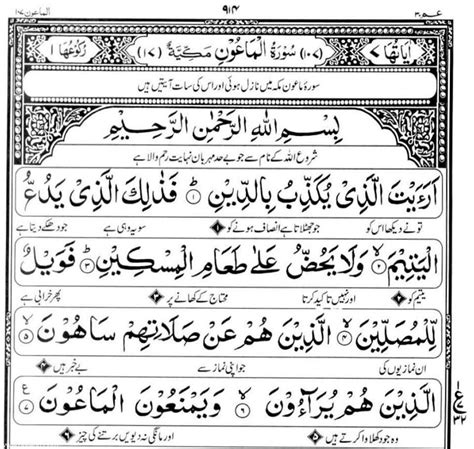 عم ٣٠ ٩١٤ الماعون ١٠٧
اٰيَاتُهَا ٧ (١٠٧) سُوْرَةُ الْمَاعُوْنِ مَكِّيَّةٌ (١٧) رُكُوْعُهَا ١
سورۂ ماعون مکہ میں نازل ہوئی اور اس کی سات آیتیں ہیں
بِسْمِ اللّٰهِ الرَّحْمٰنِ الرَّحِيْمِ
شروع اللہ کے نام سے جو بے حد مہربان نہایت رحم والا ہے
اَرَءَيْتَ الَّذِىْ يُكَذِّبُ بِالدِّيْنِ ؕ ١ فَذٰلِكَ الَّذِىْ يَدُعُّ
تو نے دیکھا اس کو جو جھٹلاتا ہے انصاف ہونے کو ١ سو یہ وہی ہے جو دھکے دیتا ہے
الْيَتِيْمَ ۙ ٢ وَلَا يَحُضُّ عَلٰى طَعَامِ الْمِسْكِيْنِ ؕ ٣ فَوَيْلٌ
یتیم کو ٢ اور نہیں تاکید کرتا محتاج کے کھانے پر ٣ پھر خرابی ہے
لِّلْمُصَلِّيْنَ ۙ ٤ الَّذِيْنَ هُمْ عَنْ صَلَاتِهِمْ سَاهُوْنَ ۙ ٥
ان نمازیوں کی جو اپنی نماز سے بے خبر ہیں ٤
الَّذِيْنَ هُمْ يُرَآءُوْنَ ۙ ٦ وَيَمْنَعُوْنَ الْمَاعُوْنَ ع ٧
وہ جو دکھلاوا کرتے ہیں ٥ اور مانگی نہ دیویں برتنے کی چیز ٦
ع
٣٢